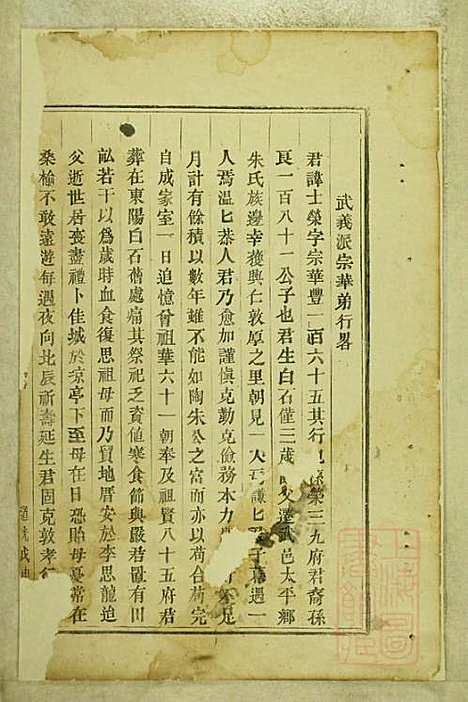 武義派宗華弟行畧
君諱士榮字宗華豐一百六十五其行也 榮三九府君裔孫
良一百八十一公子也君生白石僅三歲 父遷武邑太平鄉
朱氏族邊幸獲興仁敦厚之里朝見一人 謙匕君子暮遇一
人焉温匕恭人君乃愈加謹慎克勤克儉務本力 足
月計有餘積以數年雖不能如陶朱公之富而亦以苟合苟完
自成家室一日追憶曾祖華六十一朝奉及祖賢八十五府君
葬在東陽白石舊處痛其祭祀之資値寒食節與嚴君置有田
畝若干以爲歲時血食復思祖母而乃買地厝安於李思龍迨
父逝世君喪盡禮卜佳城於凉亭下至母在日恐貽母憂常在
桑榆不敢遠遊每遇夜向北辰祈壽延生君固克敦孝